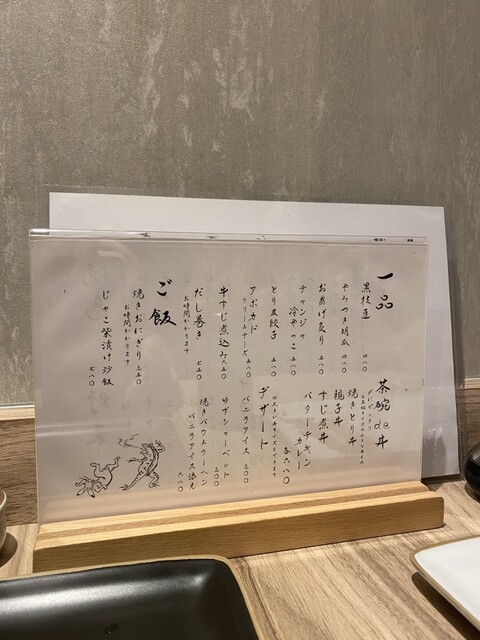 一品
黒枝豆 四八〇
やみつき胡瓜 四八〇
お揚げ炙り 五八〇
チャンジャ
冷やっこ 五八〇
とり皮餃子 五八〇
アボカド
クリームチーズ 五八〇
牛すじ煮込み 六五〇
だし巻き 七五〇
お時間かかります
ご飯
焼きおにぎり 三五〇
お時間かかります
じゃこ柴漬け炒飯 七八〇
茶碗de丼
焼きとり丼
親子丼
すじ煮丼
バターチキン
カレー
各六八〇
デザート
バニラアイス 三〇〇
ゆずシャーベット 三〇〇
焼きバウムクーヘン
バニラアイス添え
六八〇